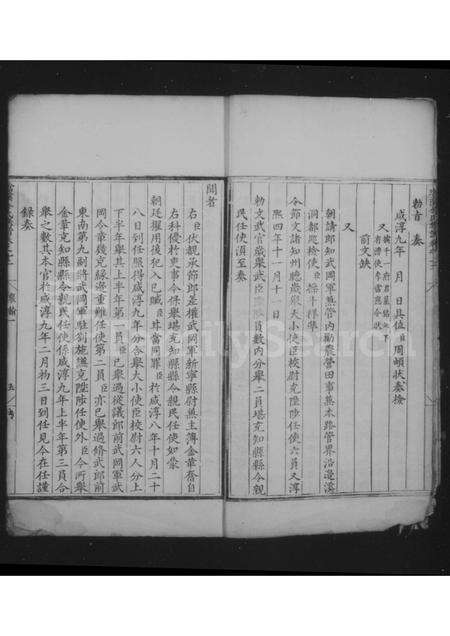 勅旨 奏
咸淳九年 月 日具位臣周頔狀奏檢
又
前文缺
又
朝請郎知武岡軍兼管內勸農營田事兼本路管界沿邊溪
洞都巡檢使臣 準
令節文諸知州聽歲舉大小使臣校尉充陞陟任使六員又淳
熙四年十一月十一日
勅文武官歲舉武臣陞陟員數內分舉二員堪充知縣縣令親
民任使須至奏
聞者
右臣伏覩承節郎差權武岡軍新寧縣尉兼主簿金章
右科優於吏事今保舉堪充知縣縣令親民任使如蒙
朝廷擢用後犯入己贓臣甘當同罪臣於咸淳八年十月二十
八日到任照得咸淳九年分合舉大小使臣校尉六人分上
下半年舉其上半年第一員臣已舉過從議郎前武岡軍武
岡令章 任使第二員臣亦已舉過脩武郎前
東南第九副將武岡軍駐劄施進充陞陟任使外臣今所舉
金章充知縣縣令親民任使係咸淳九年上半年第三員合
舉之數其本官於咸淳九年二月初三日到任見今在任謹
錄奏
FamilySearch